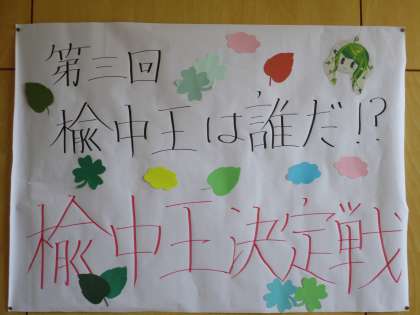 第三回
楡中王は誰だ!?
楡中王決定戦